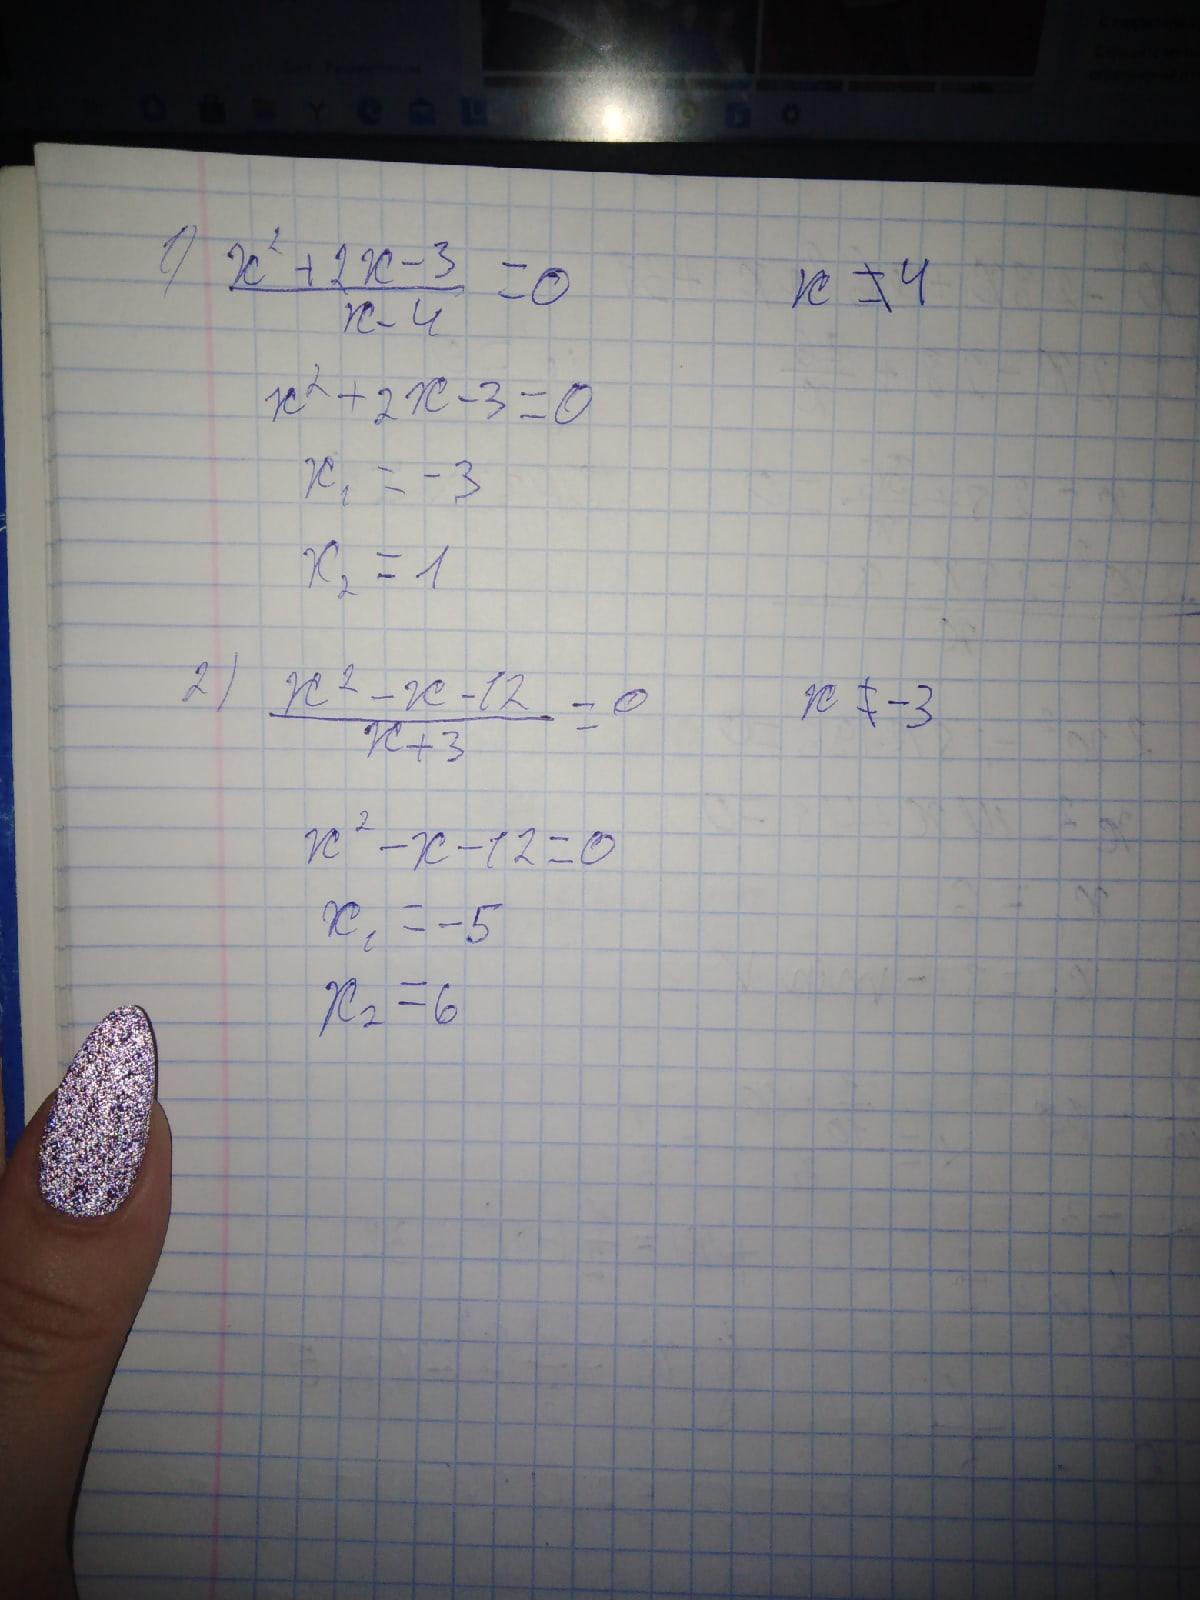 1) x² + 2x - 3 / x - 4 = 0 x ≠ 4
x² + 2x - 3 = 0
x₁ = -3
x₂ = 1
2) x² - x - 12 / x + 3 = 0 x ≠ -3
x² - x - 12 = 0
x₁ = -5
x₂ = 6